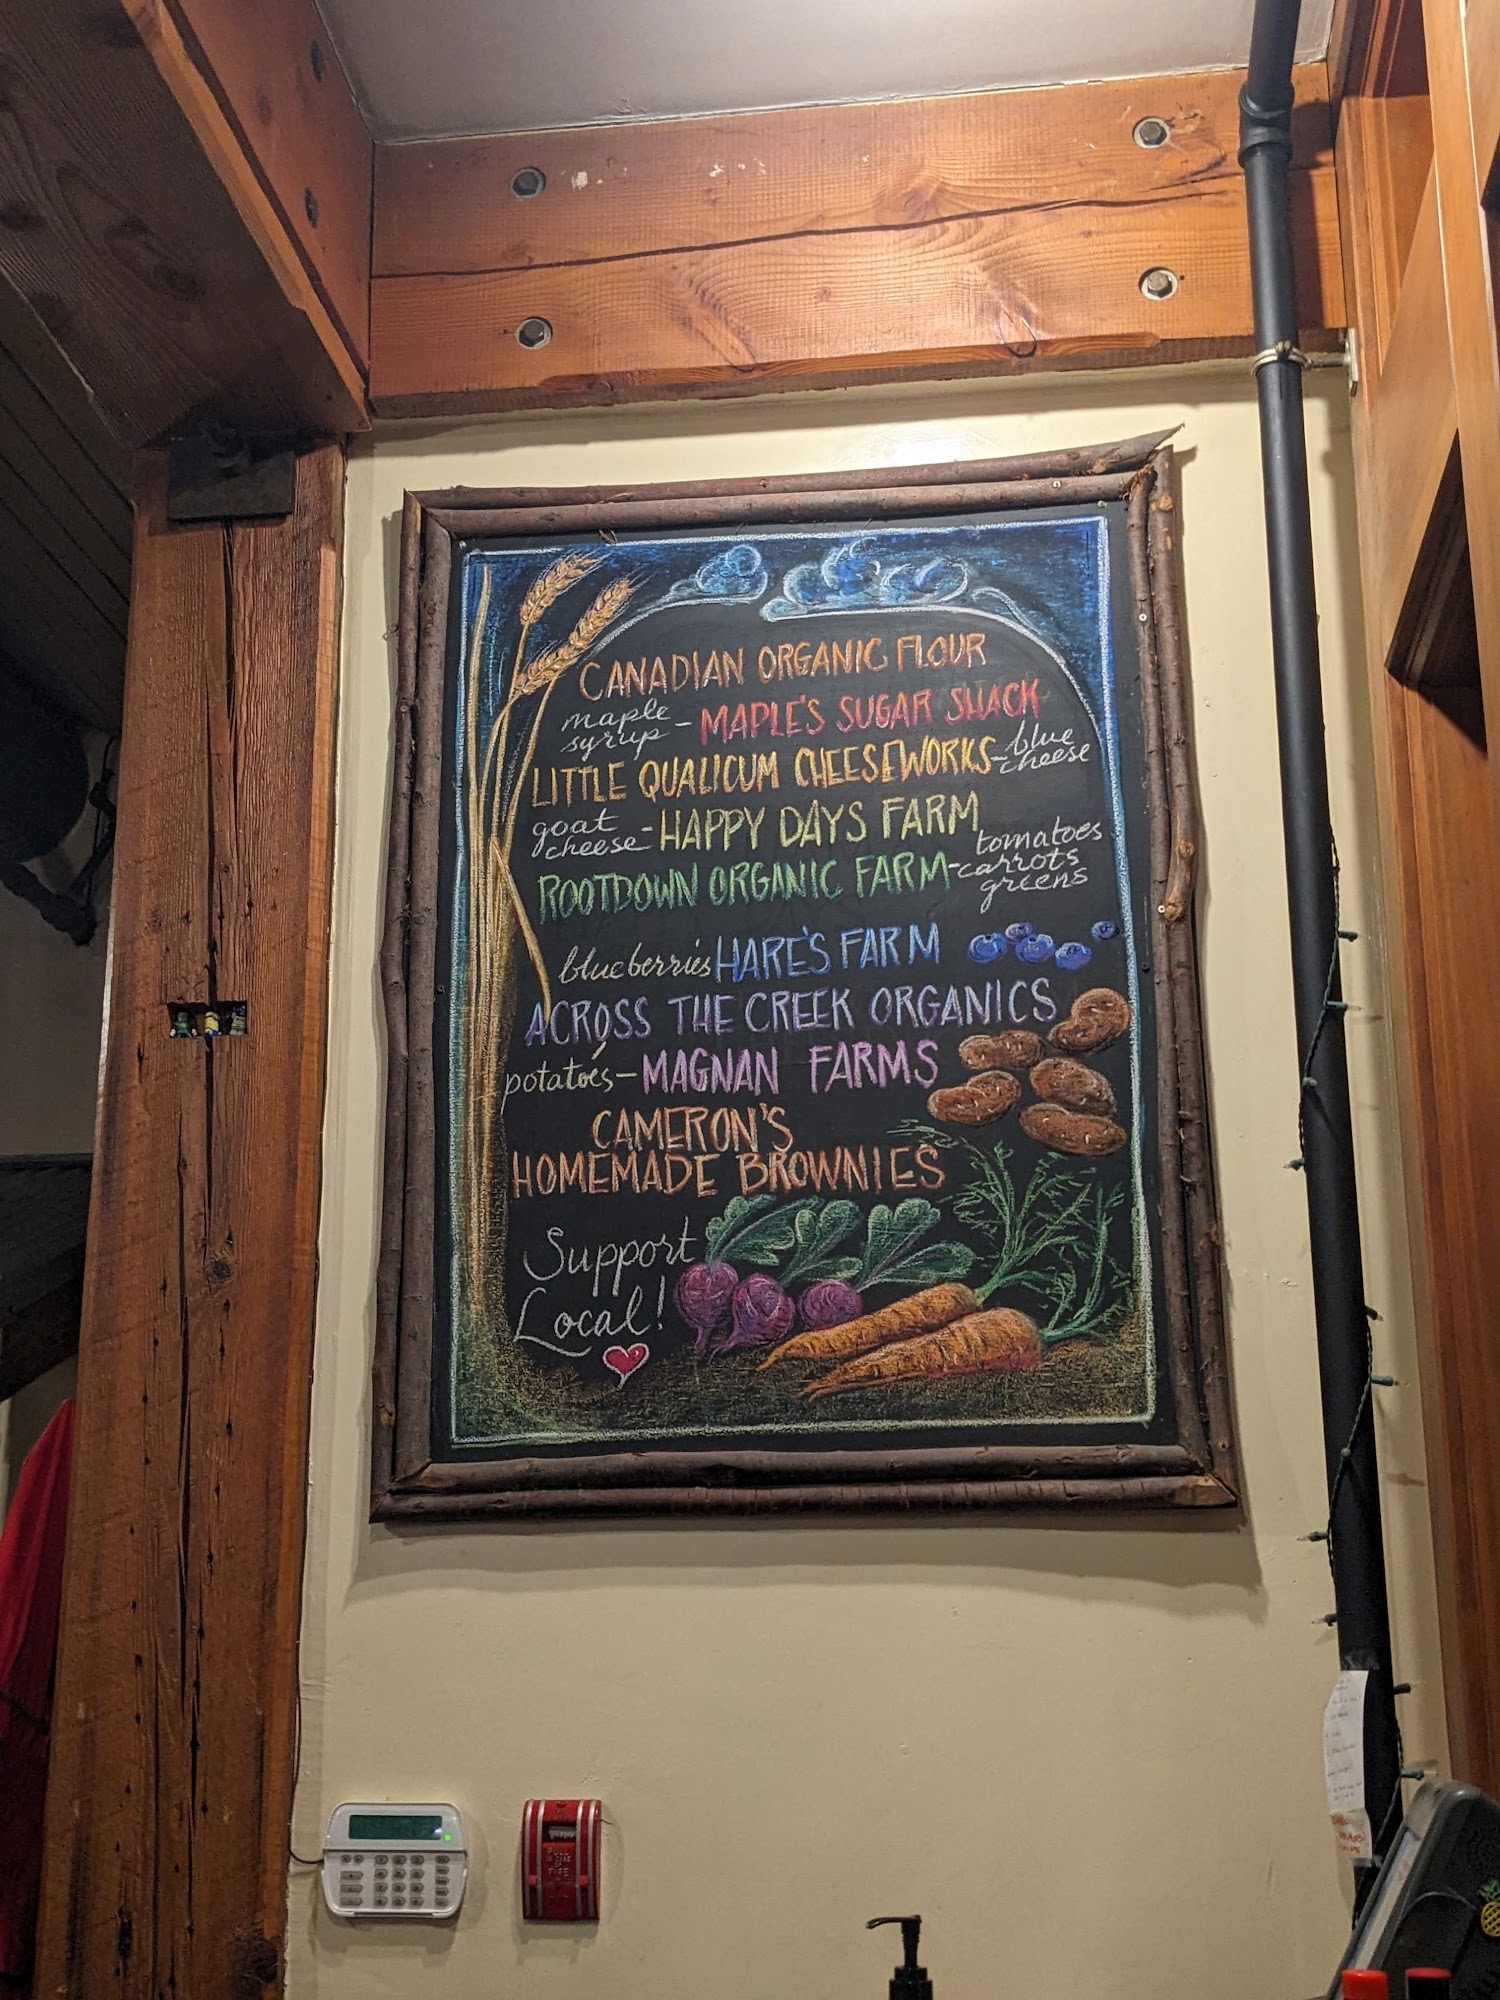 CANADIAN ORGANIC FLOUR
maple syrup - MAPLE'S SUGAR SHACK
LITTLE QUALICUM CHEESEWORKS - blue cheese
goat cheese - HAPPY DAYS FARM
ROOTDOWN ORGANIC FARM - tomatoes carrots greens
blueberries HARE'S FARM
ACROSS THE CREEK ORGANICS
potatoes - MAGNAN FARMS
CAMERON'S
HOMEMADE BROWNIES
Support
Local!